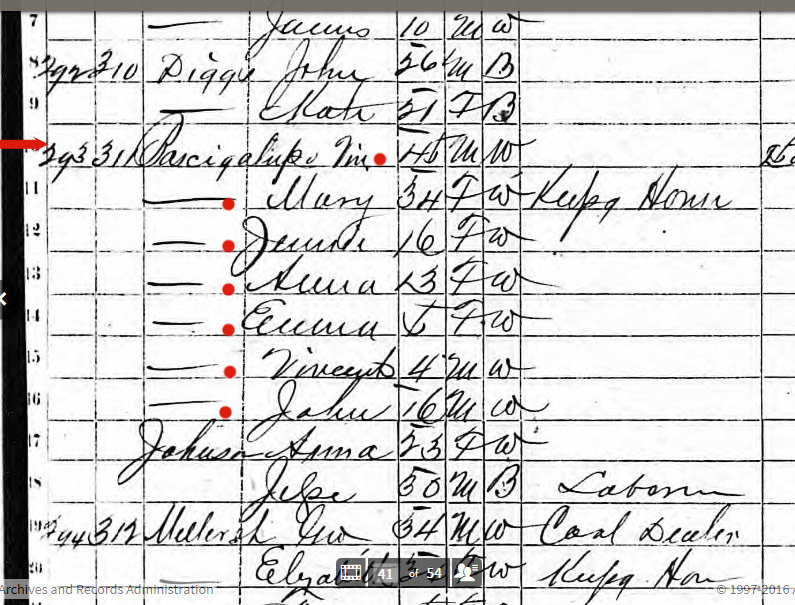 7 — James 10 M W
8 292 310 Diggs John 56 M B
9 — Kate 51 F B
293 311 Pascigalupo Vin 45 M W
11 — Mary 34 F W Kepg House
12 — Jennie 16 F W
13 — Anna 13 F W
14 — Emma F W
15 — Vincent 4 M W
16 — John 16 M W
17 Johnson Anna 23 F W
18 Jesse 50 M B Laborer
19 294 312 Mellersh Geo 34 M W Coal Dealer
20 — W Kepg Hou
41 of 54
Archives and Records Administration
© 1997-2016